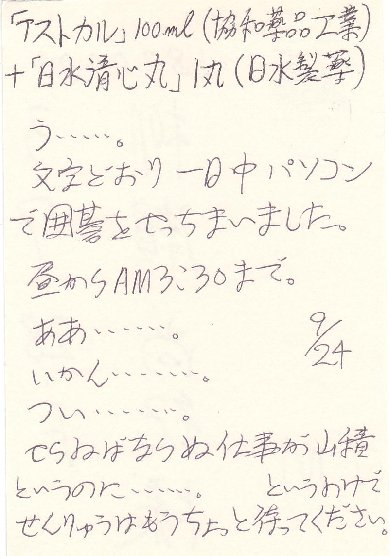 「テストカル」100ml(協和薬品工業)
+「日水清心丸」1丸(日水製薬)
う……。
文字どおり一日中パソコン
で囲碁をやっちまいました。
昼からAM3:30まで。
ああ………。
いかん………。
つい………。
9/24
せねばならぬ仕事が山積
というのに………。 というわけで
せんりゅうはもうちょっと待ってください。